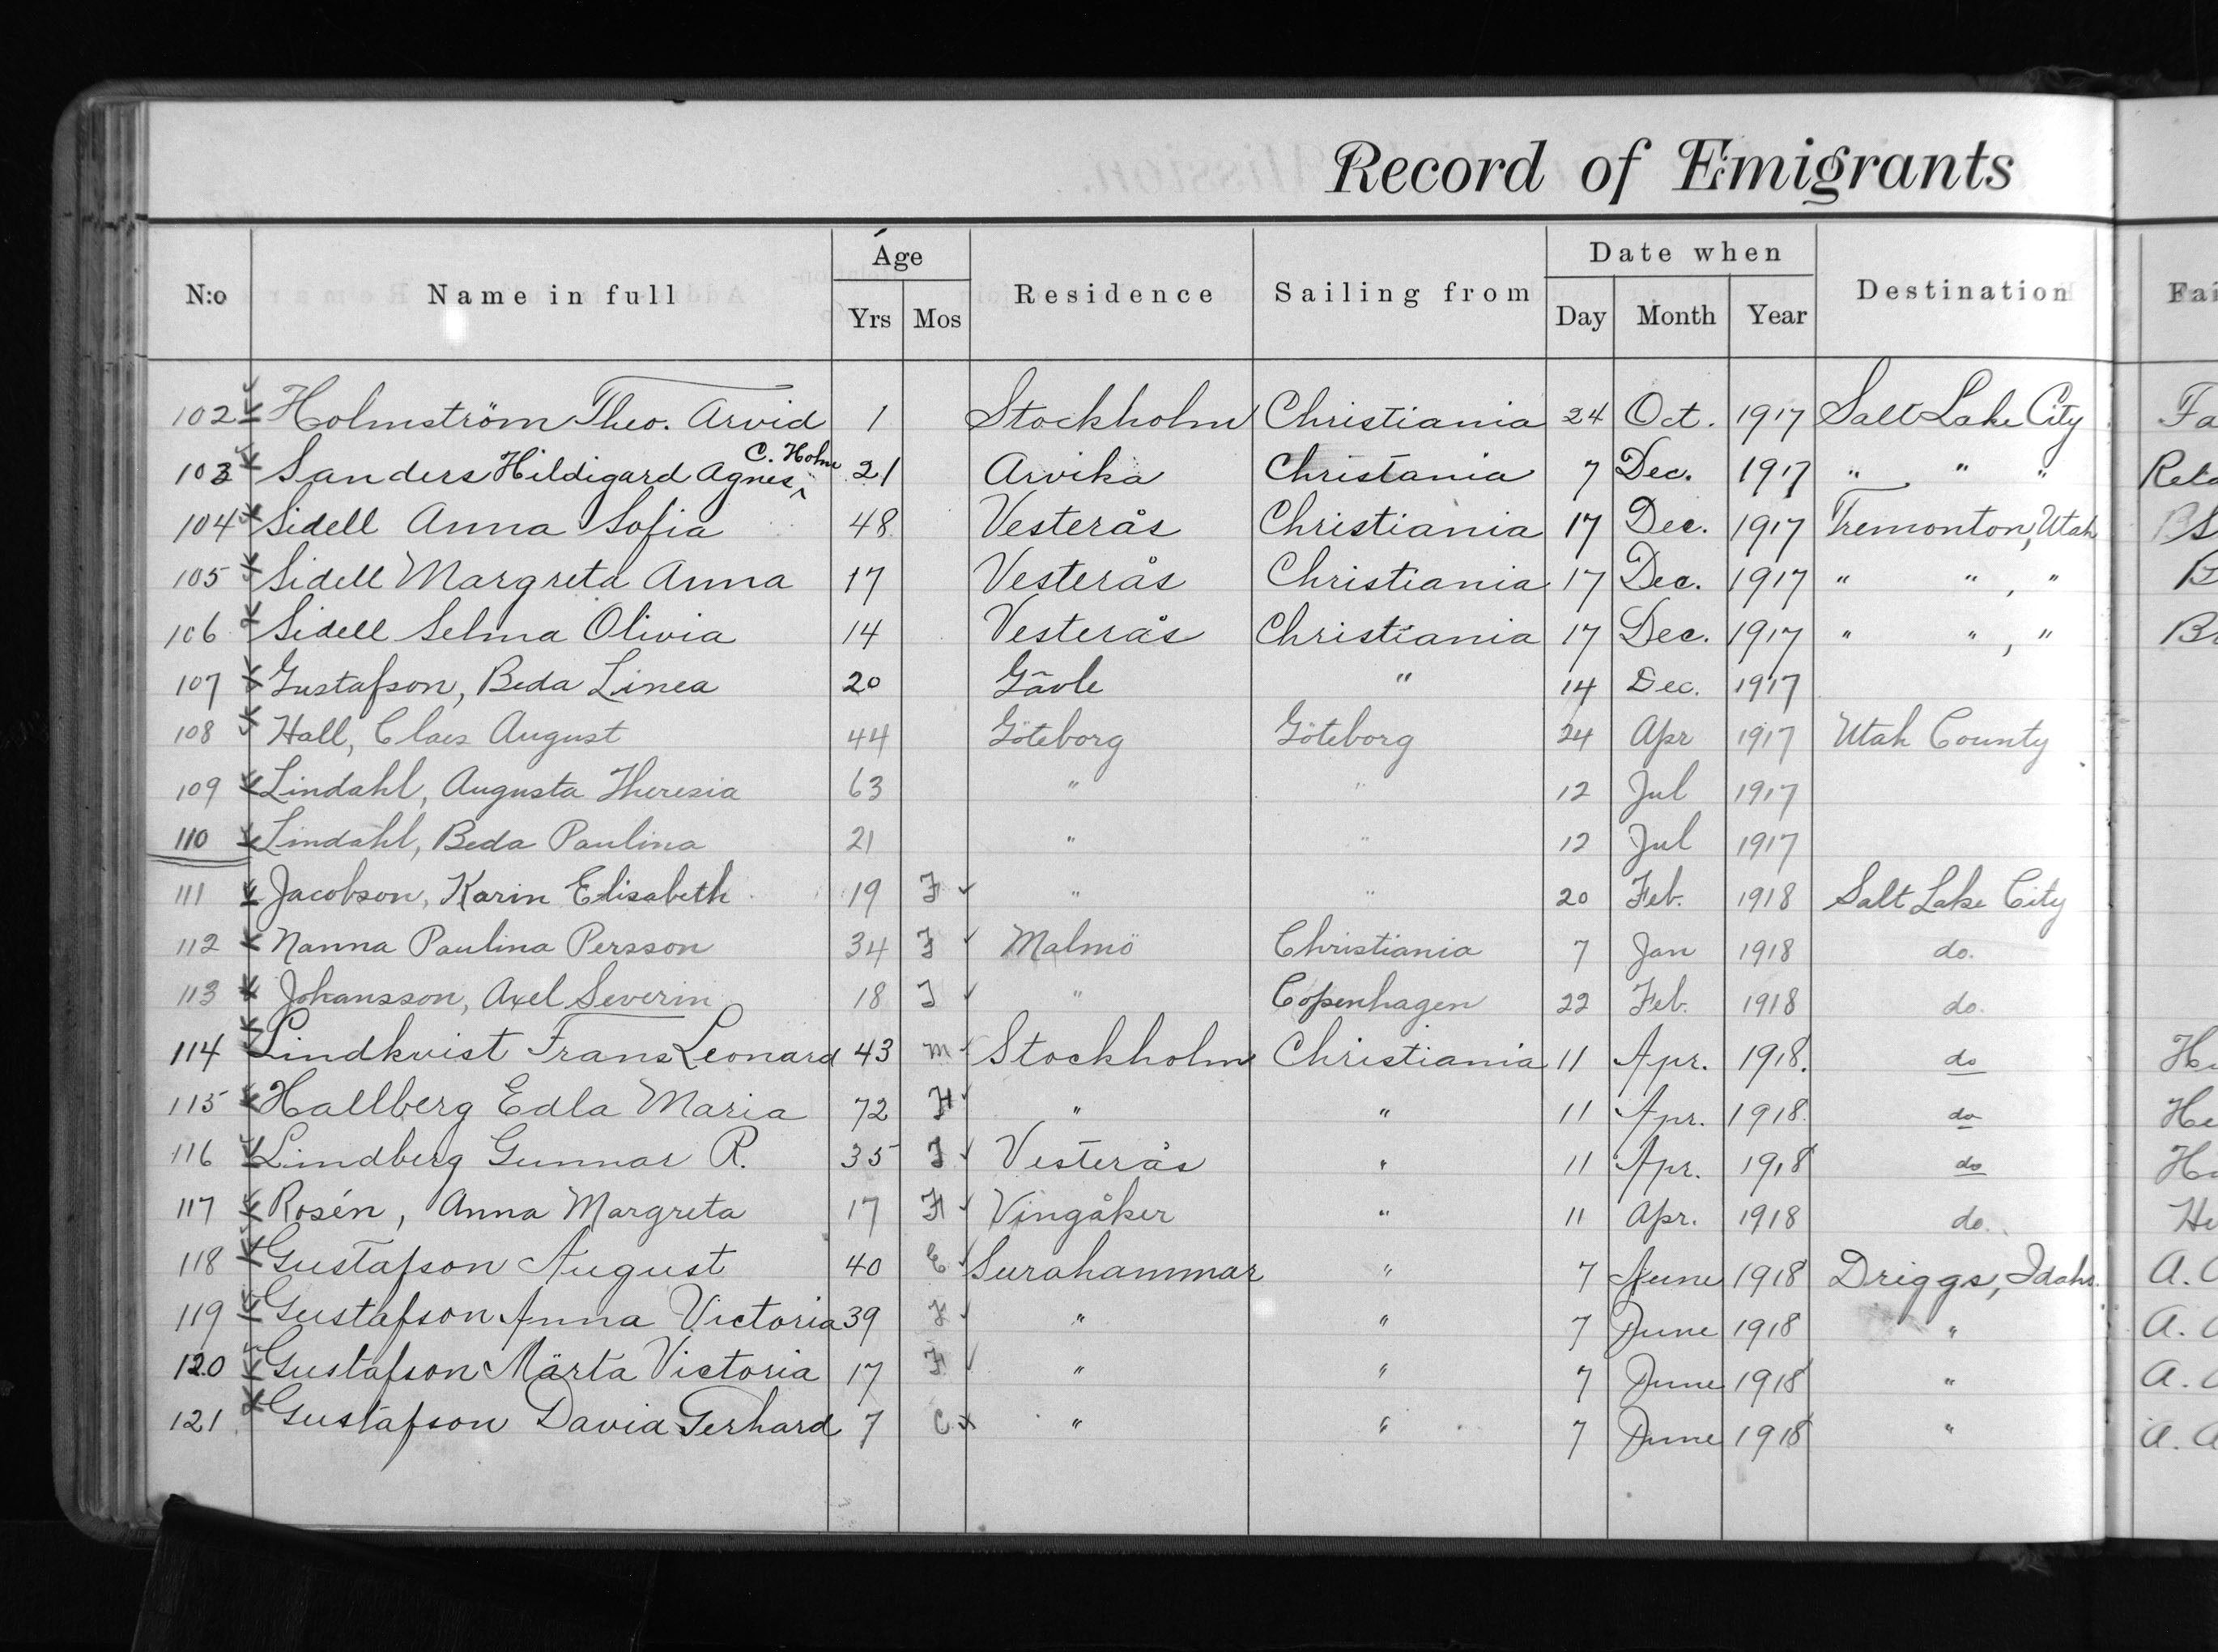 Record of Emigrants
N:o Name in full Age Yrs Mos Residence Sailing from Date when Day Month Year Destination Fai
102 Holmström Theo. Arvid 1 Stockholm Christiania 24 Oct. 1917 Salt Lake City Fa
C. Holm
103 Sanders Hildigard Agnes ^ 21 Arvika Christania 7 Dec. 1917 " " " Rela
104 Sidell Anna Sofia 48 Vesterås Christiania 17 Dec. 1917 Tremonton, Utah
105 Sidell Margreta Anna 17 Vesterås Christiania 17 Dec. 1917 " " , "
106 Sidell Selma Olivia 14 Vesterås Christiania 17 Dec. 1917 " " , "
107 Gustafson, Beda Linea 20 Gävle " 14 Dec. 1917
108 Hall, Claes August 44 Göteborg Göteborg 24 Apr 1917 Utah County
109 Lindahl, Augusta Theresia 63 " " 12 Jul 1917
110 Lindahl, Beda Paulina 21 " " 12 Jul 1917
111 Jacobson, Karin Elisabeth 19 F ✓ " " 20 Feb. 1918 Salt Lake City
112 Nanna Paulina Persson 34 F ✓ Malmö Christiania 7 Jan 1918 do.
113 Johansson, Axel Severin 18 ✓ " Copenhagen 22 Feb. 1918 do.
114 Lindkvist Frans Leonard 43 m ✓ Stockholm Christiania 11 Apr. 1918. do
115 Hallberg Edla Maria 72 ✓ " " 11 Apr. 1918. do He
116 Lindberg Gunnar R. 35 ✓ Vesterås " 11 Apr. 1918 do
117 Rosén, Anna Margreta 17 ✓ Vingåker " 11 Apr. 1918 do.
118 Gustafson August 40 ✓ Surahammar " 7 June 1918 Driggs, Idaho. A.
119 Gustafson Anna Victoria 39 ✓ " " 7 June 1918 " A.
120 Gustafson Märta Victoria 17 ✓ " " 7 June 1918 " A.
121 Gustafson David Gerhard 7 C x " " 7 June 1918 " A.